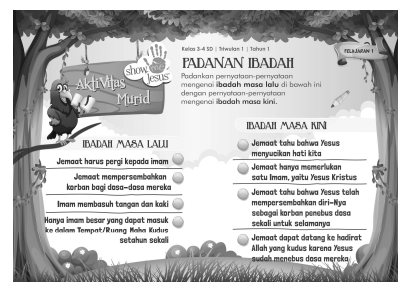 Kelas 3-4 SD | Triwulan 1 | Tahun 1
PELAJARAN 1
show me Jesus
Aktivitas
Murid
PADANAN IBADAH
Padankan pernyataan-pernyataan
mengenai ibadah masa lalu di bawah ini
dengan pernyataan-pernyataan
mengenai ibadah masa kini.
IBADAH MASA LALU
Jemaat harus pergi kepada imam
Jemaat mempersembahkan
korban bagi dosa-dosa mereka
Imam membasuh tangan dan kaki
Hanya imam besar yang dapat masuk
ke dalam Tempat/Ruang Maha Kudus
setahun sekali
IBADAH MASA KINI
Jemaat tahu bahwa Yesus
menyucikan hati kita
Jemaat hanya memerlukan
satu Imam, yaitu Yesus Kristus
Jemaat tahu bahwa Yesus telah
mempersembahkan diri-Nya
sebagai korban penebus dosa
sekali untuk selamanya
Jemaat dapat datang ke hadirat
Allah yang kudus karena Yesus
sudah menebus dosa mereka